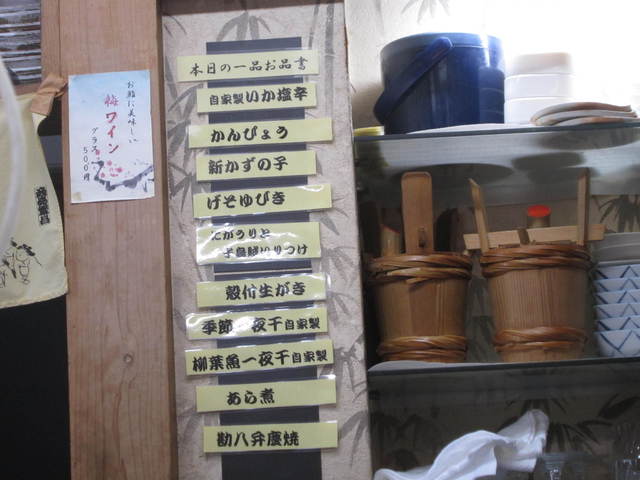 お鮨に美味しい
梅ワイン
グラス
500円
本日の一品お品書
自家製いか塩辛
かんぴょう
新かずの子
げそゆびき
にがうりと
子烏賊いりつけ
殻付生がき
季節一夜干自家製
柳葉魚一夜干自家製
あら煮
勘八弁慶焼